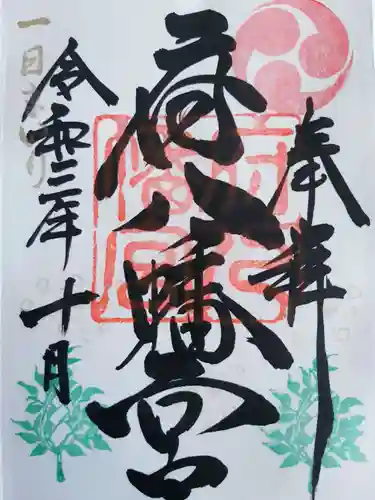 奉拝
府八幡宮
令和三年十月
一日まいり